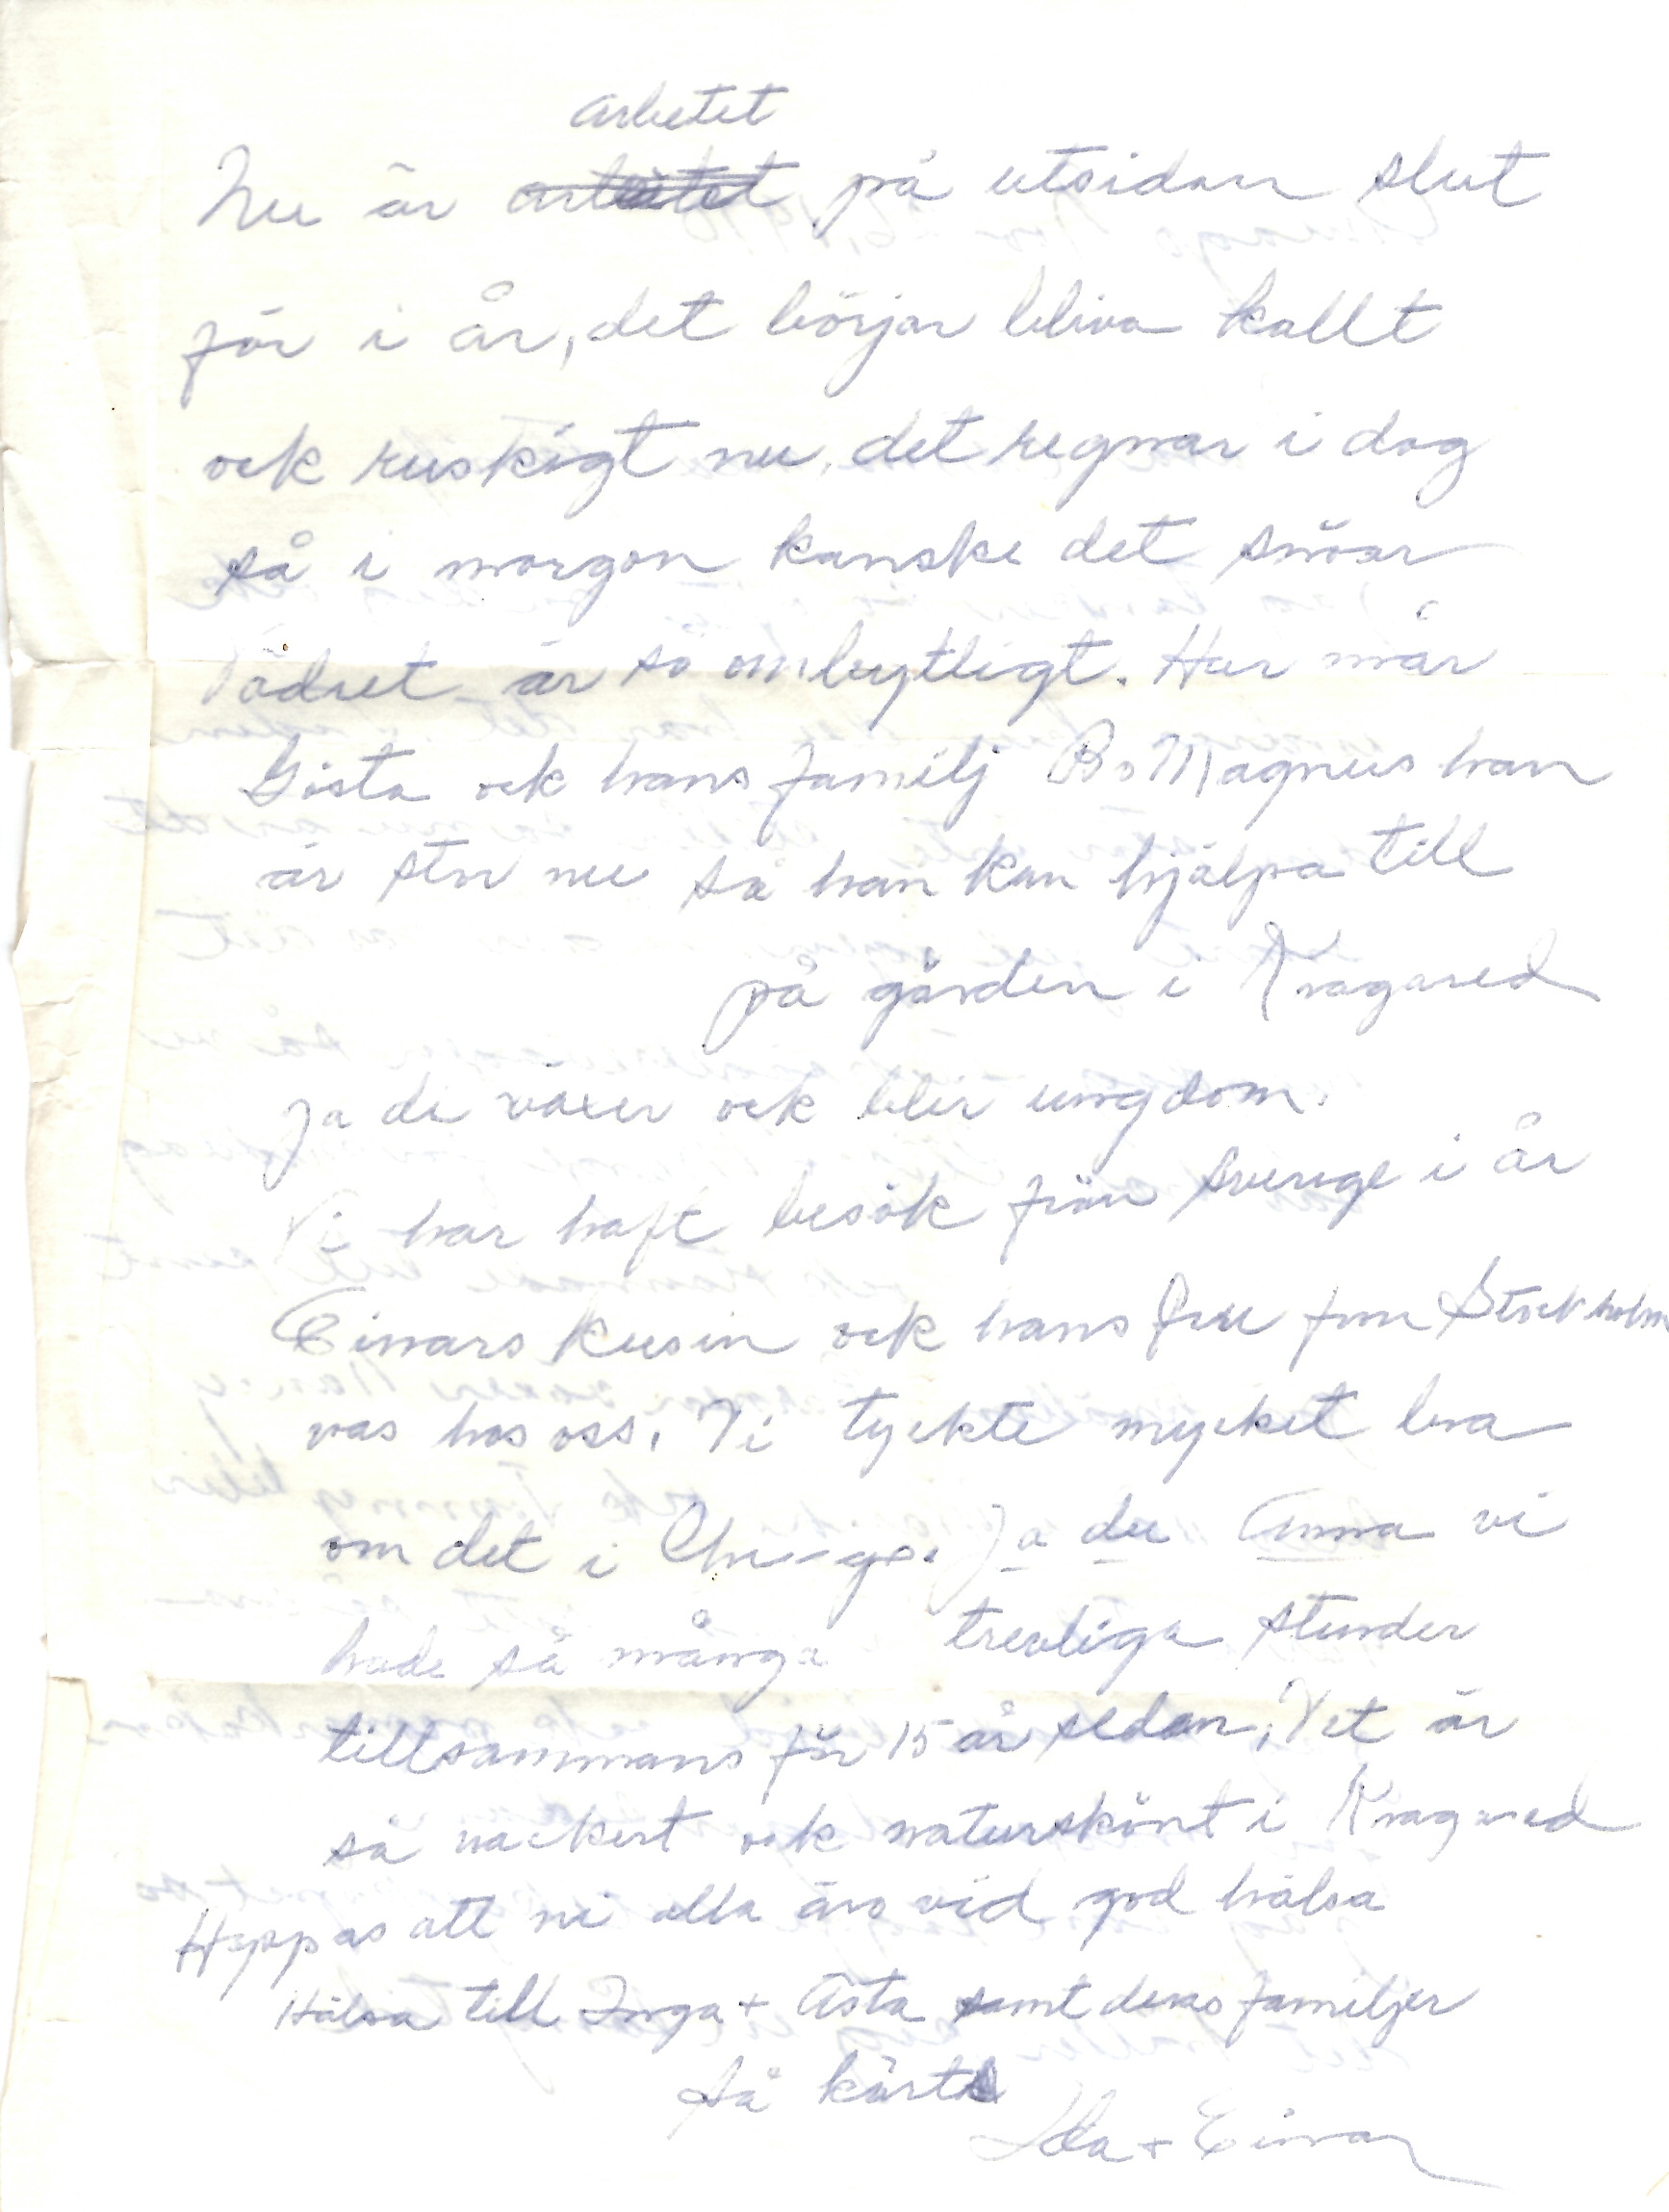 arbetet
Nu är arbetet på utsidan slut
för i år, det börjar bliva kallt
ock ruskigt nu, det regnar i dag
så i morgon kanske det snöar
Vädret är så ombytligt. Hur mår
Gösta ock hans familj Bo Magnus han
är stor nu så han kan hjälpa till
på gården i Kragared
Ja de växer ock blir ungdom.
Vi har haft besök från Sverige i år
Einars kusin ock hans fru från Stockholm
vas hos oss. Vi tyckte mycket bra
om det i Ja du Anna vi
hade så många trevliga stunder
tillsammans för 15 år sedan. Det är
så vackert ock naturskönt i Kragared
Hoppas att ni alla äro vid god hälsa
Hälsa till Inga + Asta samt deras familjer
Så kärt
Ida + Einar